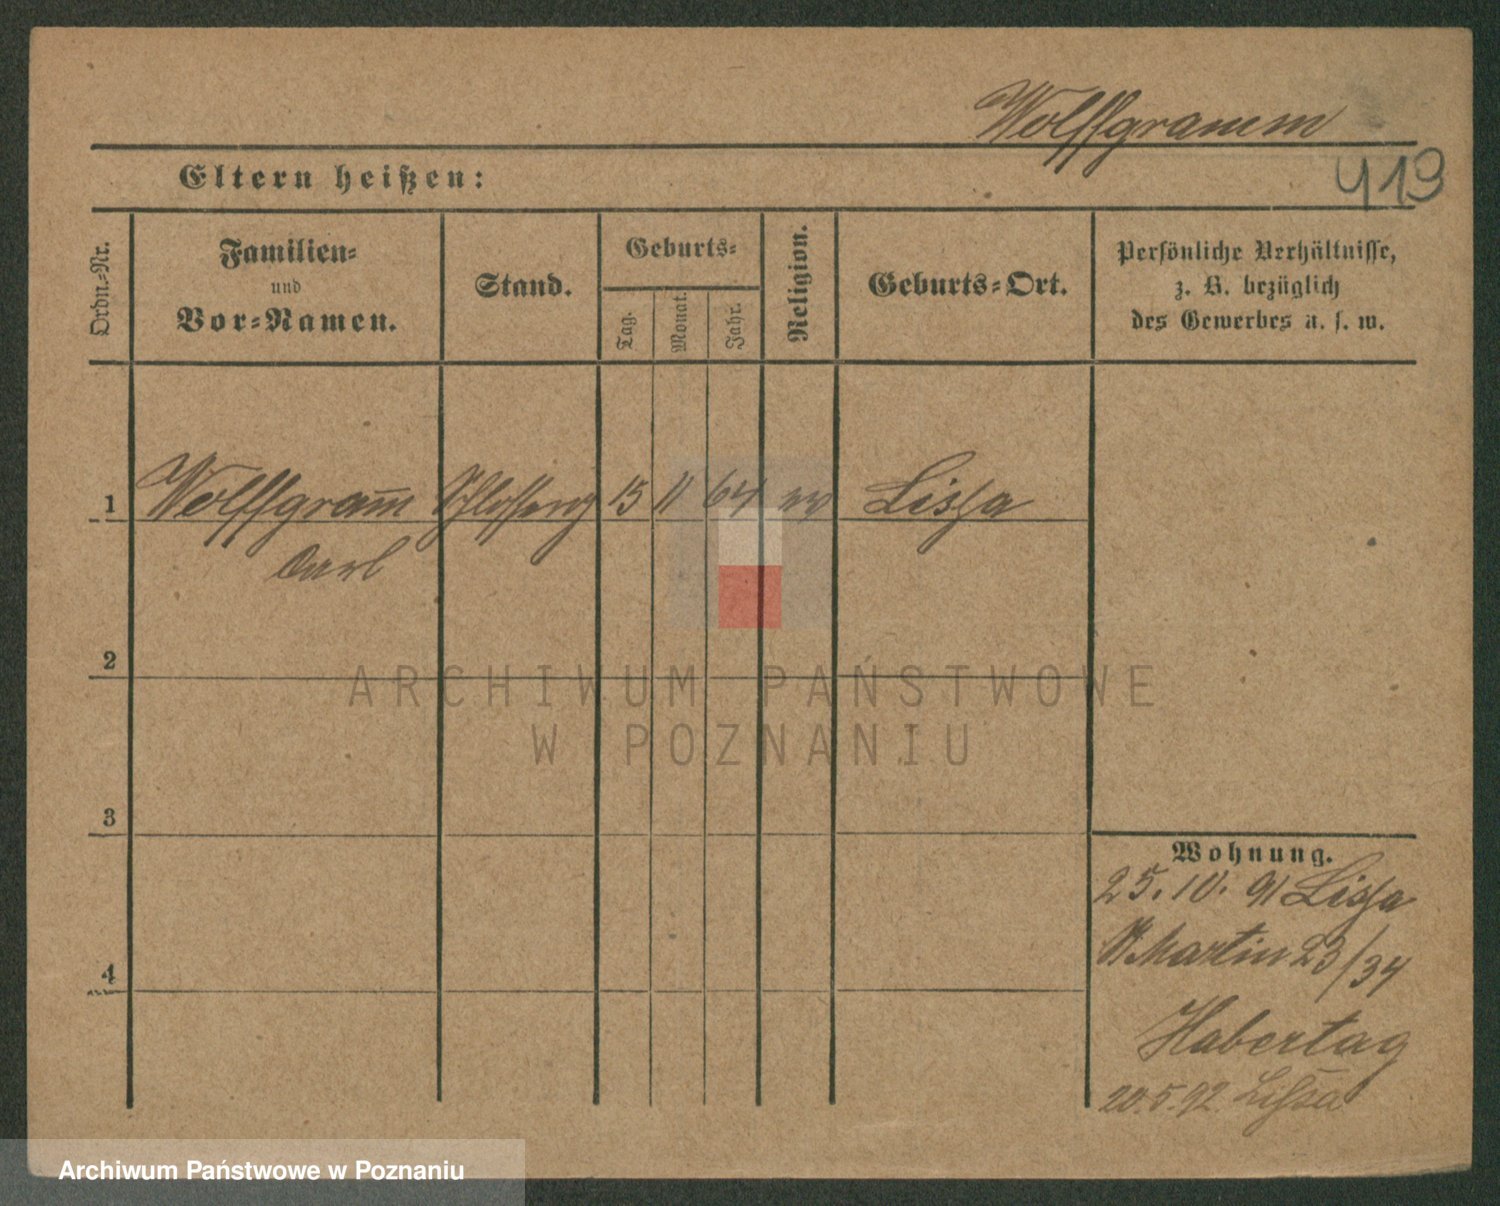 Wolffgramm
Eltern heißen:
419
Ordn.-Nr.
Familien-
und
Vor-Namen.
Stand.
Geburts-
Tag.
Monat.
Jahr.
Religion.
Geburts-Ort.
Persönliche Verhältnisse,
z. B. bezüglich
des Gewerbes u. s. w.
1 Wolffgram̅ 15 11 64 ev Lissa
Carl
2
ARCHIWUM PAŃSTWOWE
W POZNANIU
3
Wohnung.
25. 10. 91 Lissa
St Martin 23/34
Habertag
4
20.5.92. Lissa
Archiwum Państwowe w Poznaniu